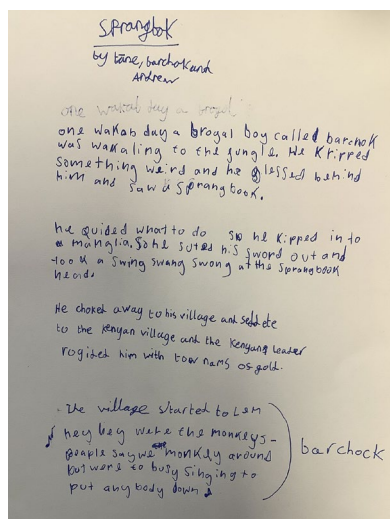 Sprangbok
by tāne, barchok and
Andrew
one wakab day a brogal
one wakab day a brogal boy called barchok
was wakaling to the jungle. He kripped
something weird and he glessed behind
him and saw a sprangbook.
he quided what to do so he kipped in to
a manglia. So he suted his sword out and
took a swing swang swong at the sprangbook
head.
He choked away to his village and
to the kenyan village and the kenyang leader
rogited him with tow nams of gold.
the village started to
hey hey were the monkeys-
people say we monkey around
but were to busy singing to
put any body down
barchock